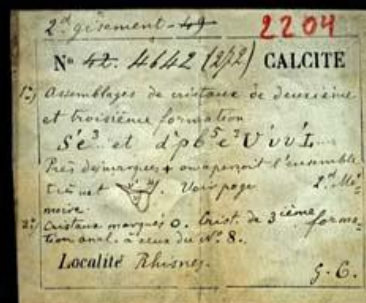 2.ᵈ gisement 49
2204
Nº 42. 4642 (2/2) CALCITE
1º) Assemblages de cristaux de deuxième
et troisième formation
S'e³ et d'pb⁵e³
Près des marques + on aperçoit l'ensemble
très net. Voir page 2.ᵈ Mé-
moire.
2º) Cristaux marqués O. Crist. de 3ième forma-
tion anal. à ceux du Nº 8.
Localité Rhisnes.
G. C.